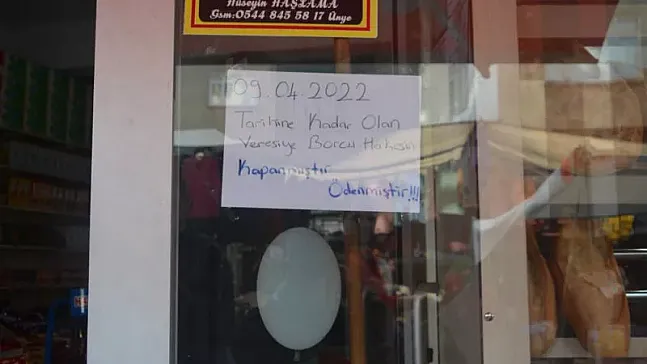 Hüseyin HAŞLAMA
Gsm:0544 845 58 17 Ünye
09.04.2022
Tarihine Kadar Olan
Veresiye Borcu Halkın
Kapanmıştır
Ödenmiştir!!!